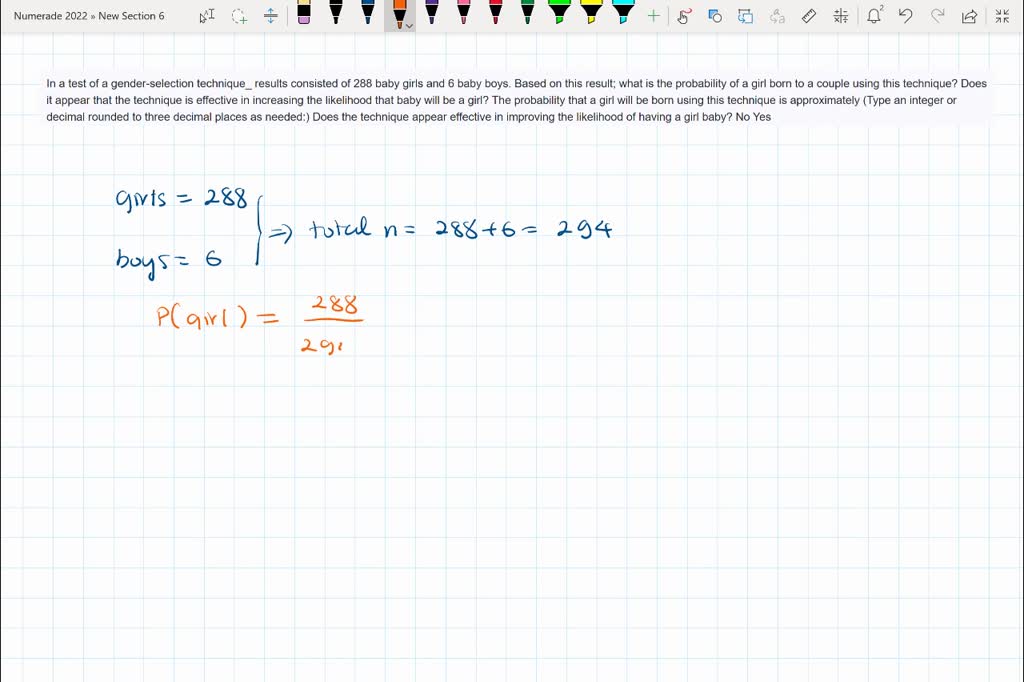 Numerade 2022 » New Section 6
2
In a test of a gender-selection technique_ results consisted of 288 baby girls and 6 baby boys. Based on this result; what is the probability of a girl born to a couple using this technique? Does
it appear that the technique is effective in increasing the likelihood that baby will be a girl? The probability that a girl will be born using this technique is approximately (Type an integer or
decimal rounded to three decimal places as needed:) Does the technique appear effective in improving the likelihood of having a girl baby? No Yes
girls = 288
⇒ total n = 288+6 = 294
boys = 6
P(girl) = 288
29